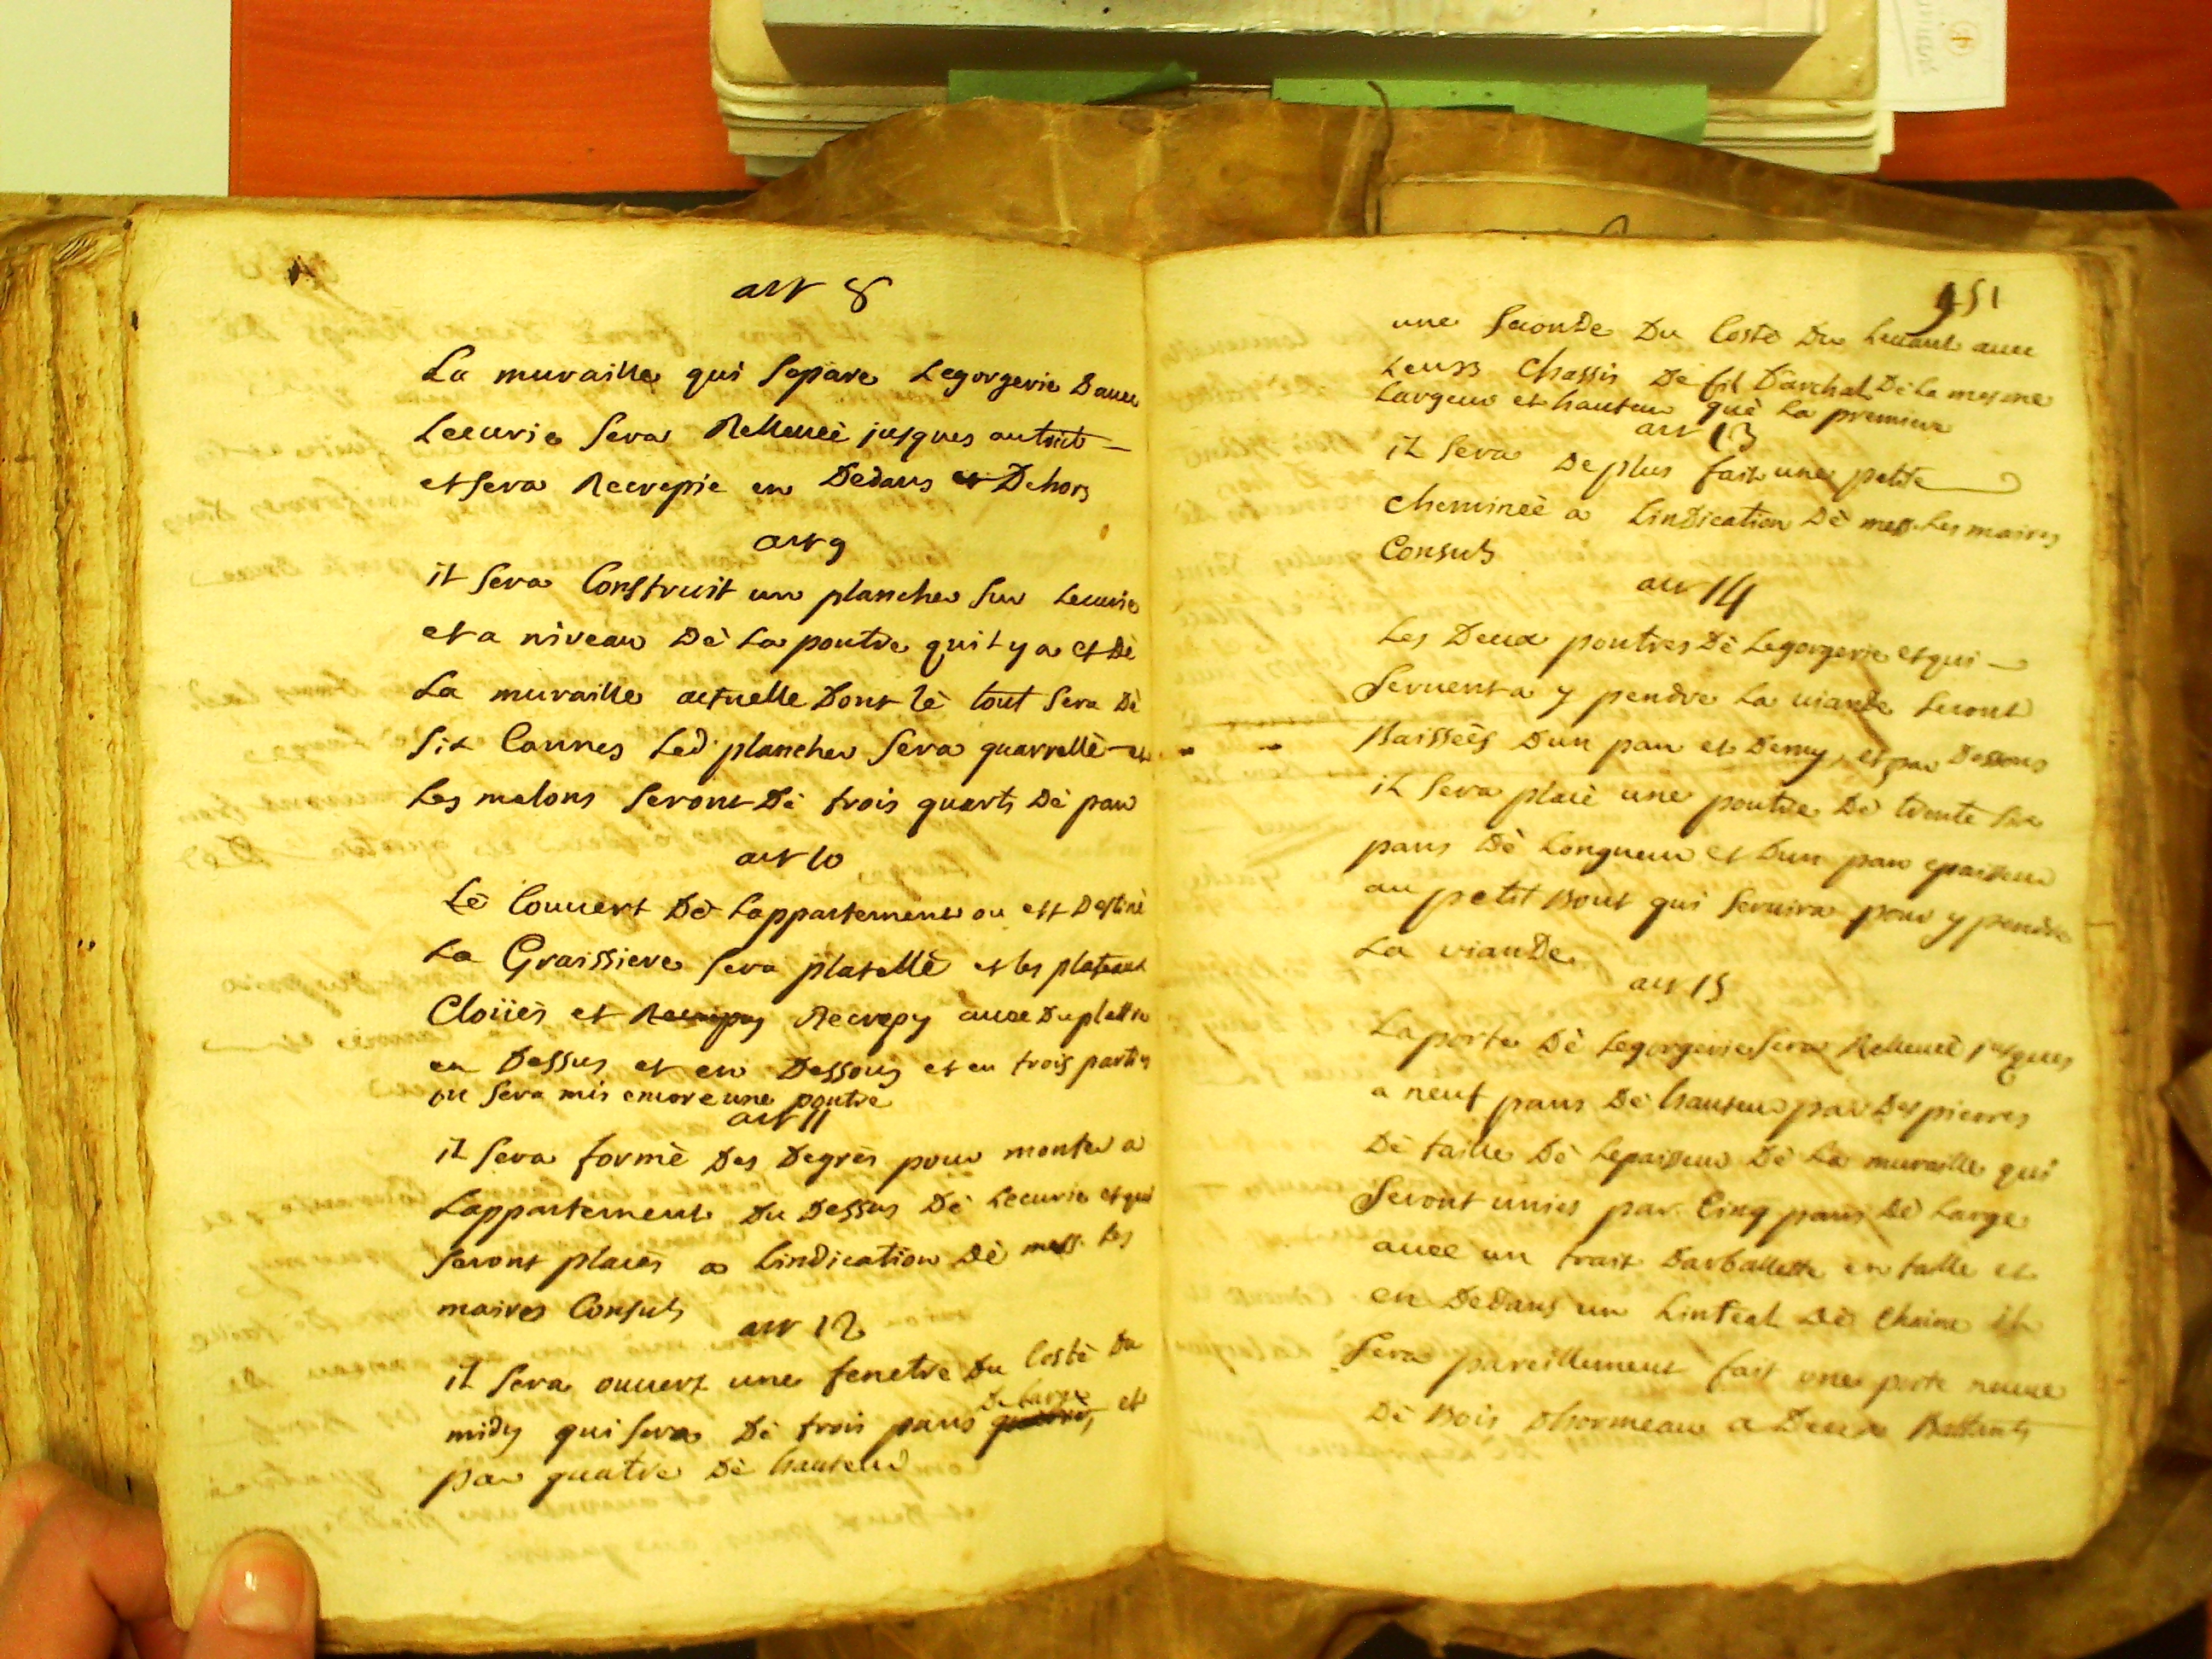 art 8
La muraille qui separe Legorgerie Dauec
Lecurie sera Relleueè jusques autoit
et sera Recrepie en Dedans et Dehors
art 9
il sera Construit un plancher sur Lecurie
et a niveau Dè La poutre quil y a et Dè
La muraille actuelle Dont lè tout sera Dè
six Cannes Led plancher sera quarrellè et
Les malons seront Dè trois quarts Dè pan
art 10
Lè Couuert Dè Lappartement ou est Destinè
La Graissiere sera platellè et les plateaux
Cloüès et Recrepy auec Du plattre
en Dessus et en Dessous et en trois parties
ou sera mis encore une poutre
art 11
il sera formè Des Degrès pour monter a
Lappartement Du Dessus Dè Lecurie et qui
seront placès a Lindication Dè mess. les
maires Consuls
art 12
il sera ouuert une fenetre Du Costè Du
midy qui sera Dè trois pans De large et
par quatre Dè hauteur
451
une seconde Du Costè Du Leuant auec
Leurs Chassis Dè fil Darchal Dè La mesme
Largeur et hauteur què La premiere
art 13
il sera De plus fait une petite
Cheminèè a Lindication Dè mess. Les maires
Consuls
art 14
Les Deux poutres Dè Legorgerie et qui
seruent a y pendre La viande seront
Baissèès Dun pan et Demy, et par Dessous
il sera placè une poutre Dè trente six
pans Dè Longueur et Dun pan epaisseur
au petit Bout qui seruira pour y pendre
La viande
art 15
La porte Dè Legorgerie sera Relleueè jusques
a neuf pans Dè hauteur par Des pierres
Dè taille Dè Lepaisseur Dè La muraille qui
seront unies par Cinq pans Dè Large
auec un trait Darballette en talle et
en Dedans un Linteal Dè Chaine il
sera pareillement fait une porte neuue
Dè Bois Dhormeau a Deux Battants